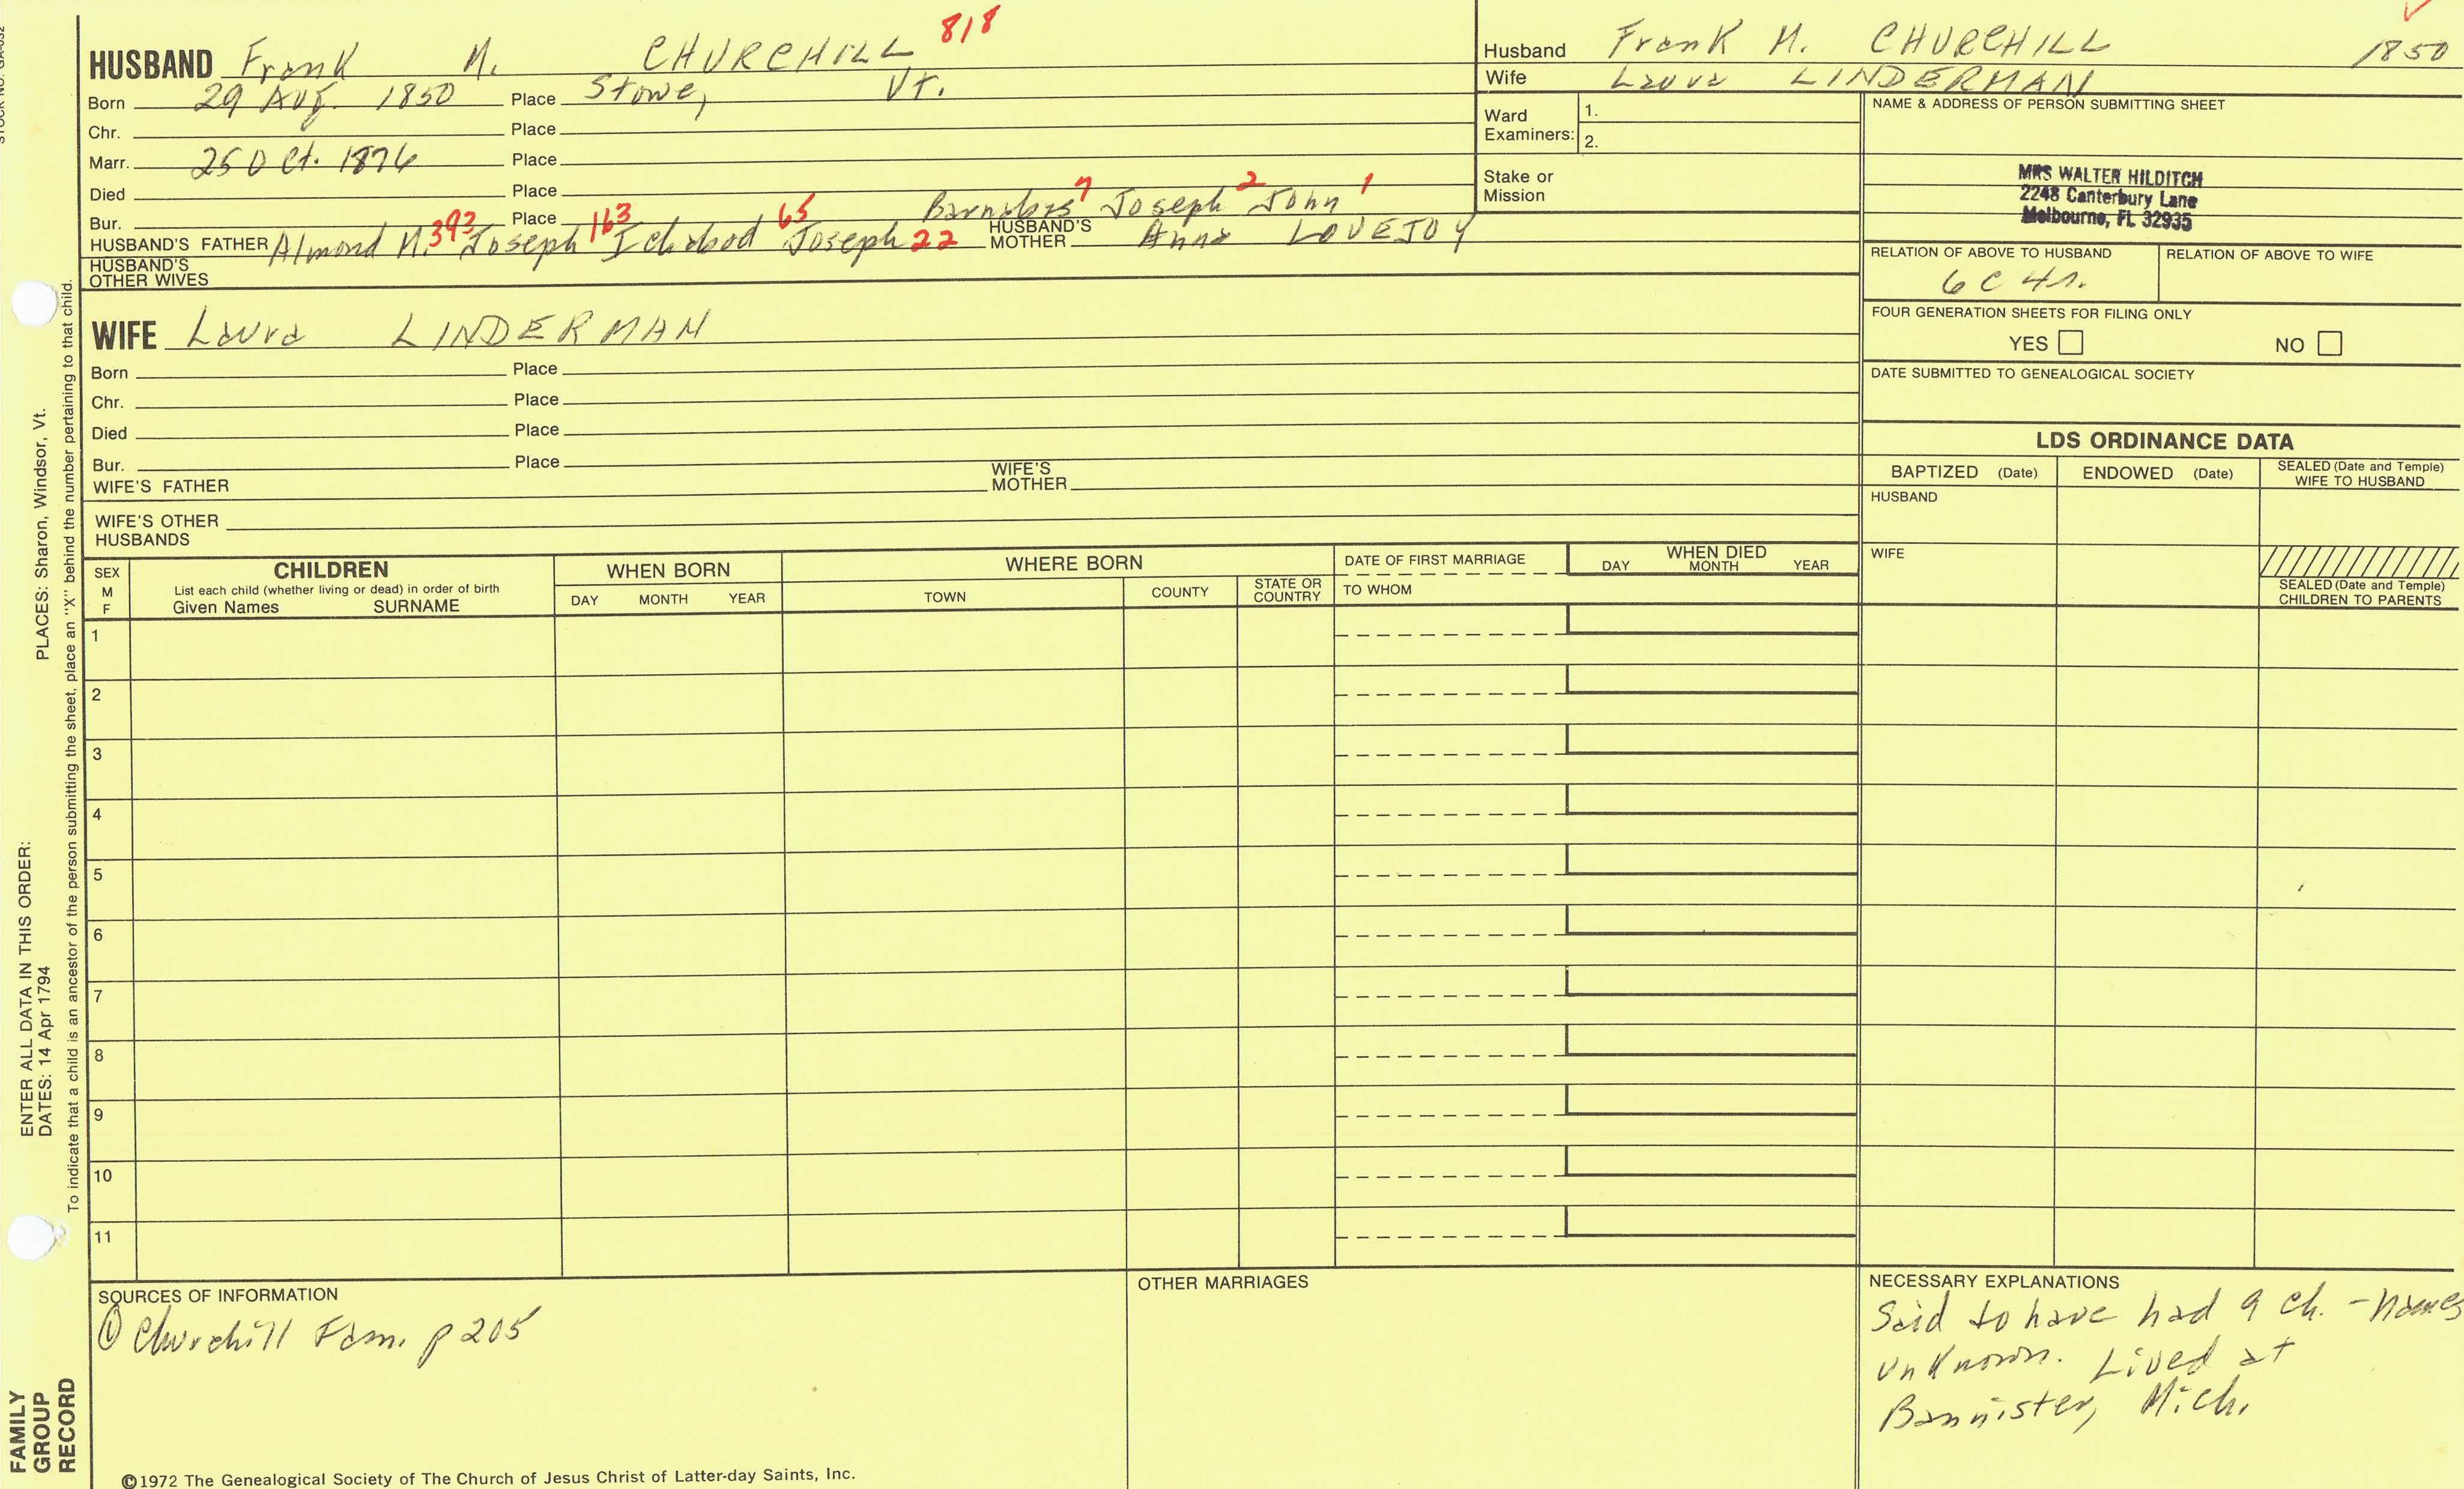 HUSBAND Frank M. CHURCHILL 818
Born 29 Aug. 1850 Place Stowe, Vt.
Chr. Place
Marr. 25 Oct. 1876 Place
Died Place
Bur. Place Barnabas 7 Joseph 2 John 1
HUSBAND'S FATHER Almond M. 393 Joseph 163 Ichabod 65 Joseph 22 HUSBAND'S MOTHER Anna LOVEJOY
HUSBAND'S OTHER WIVES
WIFE Laura LINDERMAN
Born Place
Chr. Place
Died Place
Bur. Place
WIFE'S FATHER WIFE'S MOTHER
WIFE'S OTHER HUSBANDS
Husband Frank M. CHURCHILL 1850
Wife Laura LINDERMAN
Ward Examiners: 1.
2.
Stake or Mission
NAME & ADDRESS OF PERSON SUBMITTING SHEET
MRS WALTER HILDITCH
2248 Canterbury Lane
Melbourne, FL 32935
RELATION OF ABOVE TO HUSBAND RELATION OF ABOVE TO WIFE
6 C 4r.
FOUR GENERATION SHEETS FOR FILING ONLY
YES NO
DATE SUBMITTED TO GENEALOGICAL SOCIETY
LDS ORDINANCE DATA
BAPTIZED (Date) ENDOWED (Date) SEALED (Date and Temple) WIFE TO HUSBAND
HUSBAND
WIFE
SEALED (Date and Temple) CHILDREN TO PARENTS
SEX M F
CHILDREN
List each child (whether living or dead) in order of birth
Given Names SURNAME
WHEN BORN
DAY MONTH YEAR
WHERE BORN
TOWN COUNTY STATE OR COUNTRY
DATE OF FIRST MARRIAGE
TO WHOM
WHEN DIED
DAY MONTH YEAR
1
2
3
4
5
6
7
8
9
10
11
SOURCES OF INFORMATION
① Churchill Fam. p 205
OTHER MARRIAGES
NECESSARY EXPLANATIONS
Said to have had 9 ch. - names
unknown. Lived at
Bannister, Mich.
©1972 The Genealogical Society of The Church of Jesus Christ of Latter-day Saints, Inc.
FAMILY
GROUP
RECORD
ENTER ALL DATA IN THIS ORDER:
DATES: 14 Apr 1794 PLACES: Sharon, Windsor, Vt.
To indicate that a child is an ancestor of the person submitting the sheet, place an "X" behind the number pertaining to that child.